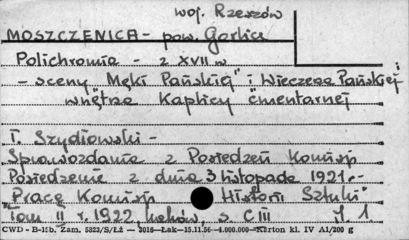 woj. Rzeszów
MOSZCZENICA - pow. Gorlice
Polichromia - z XVII w
- sceny "Męki Pańskiej" i Wieczerza Pańskiej
wnętrze Kaplicy cmentarnej
T. Szydłowski -
Sprawozdania z Posiedzeń Komisji
Posiedzenie z dnia 3 listopada 1921. -
"Prace Komisji Historii Sztuki"
Tom II r. 1922, Kraków, s. CIII
CWD - B-11b, Zam. 5823/S/Łź — 3016 — Łak — 15.11.56 — 4.000.000 — Karton kl. IV A1/200 g